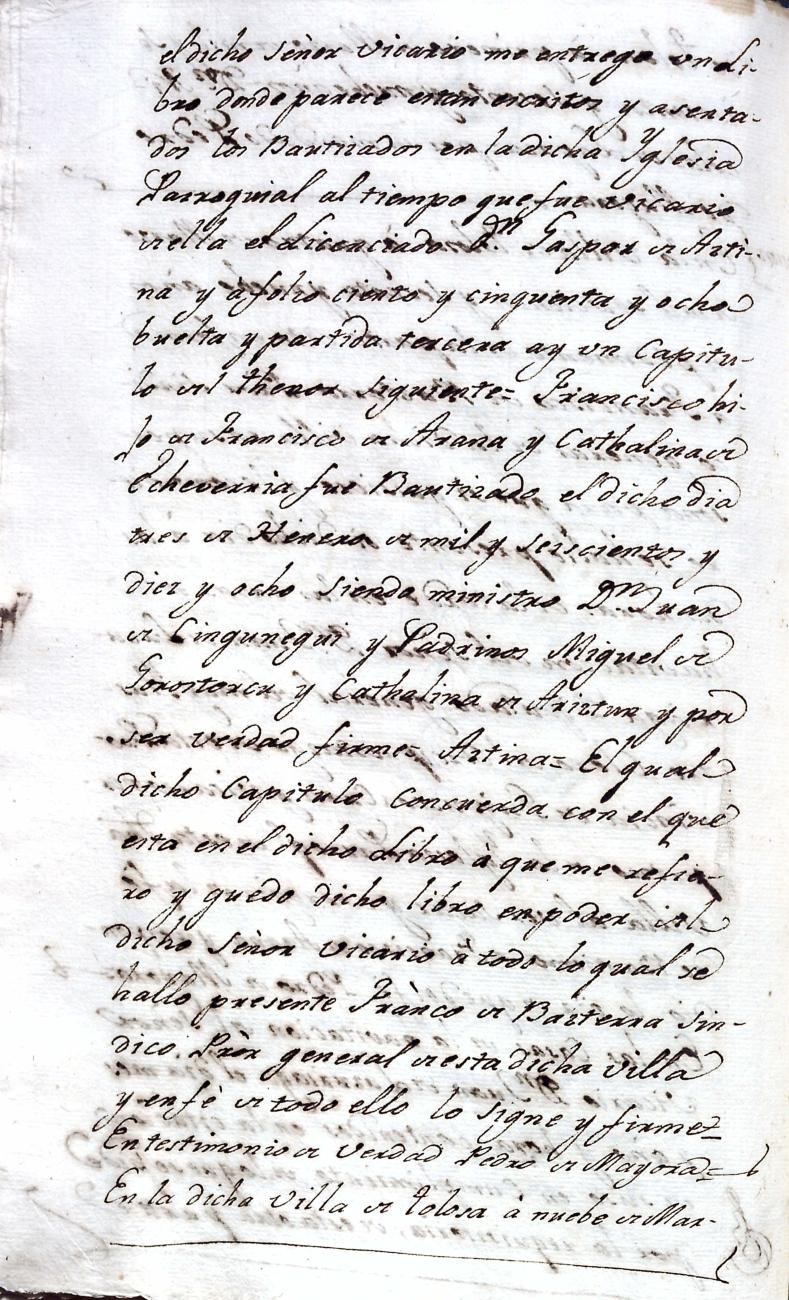 el dicho señor Vicario me entrego un Li-
bro donde parece estan escritos y asenta-
dos los Bautizados en la dicha Yglesia
Parroquial al tiempo que fue Vicario
de ella el Licenciado Dn. Gaspar de Arti-
na y à folio ciento y cinquenta y ocho
buelta y partida tercera ay un Capitu-
lo del thenor siguiente= Francisco hi-
jo de Francisco de Arana y Cathalina de
Echeverria fue Bautizado el dicho dia
tres de Henero de mil y seiscientos y
diez y ocho siendo ministro Dn. Juan
de Cingunegui y Padrinos Miguel de
Gorosterzu y Cathalina de Ariztun y por
ser verdad firme= Artina= El qual
dicho Capitulo Concuerda con el que
esta en el dicho Libro à que me refie-
ro y quedo dicho libro en poder del
dicho señor Vicario à todo lo qual se
hallo presente Franco de Bazterra sin-
dico Pròr general de esta dicha Villa
y en fè de todo ello lo signe y firme=
En testimonio de Verdad Pedro de Mayora=
En la dicha Villa de Tolosa à nuebe de Mar-